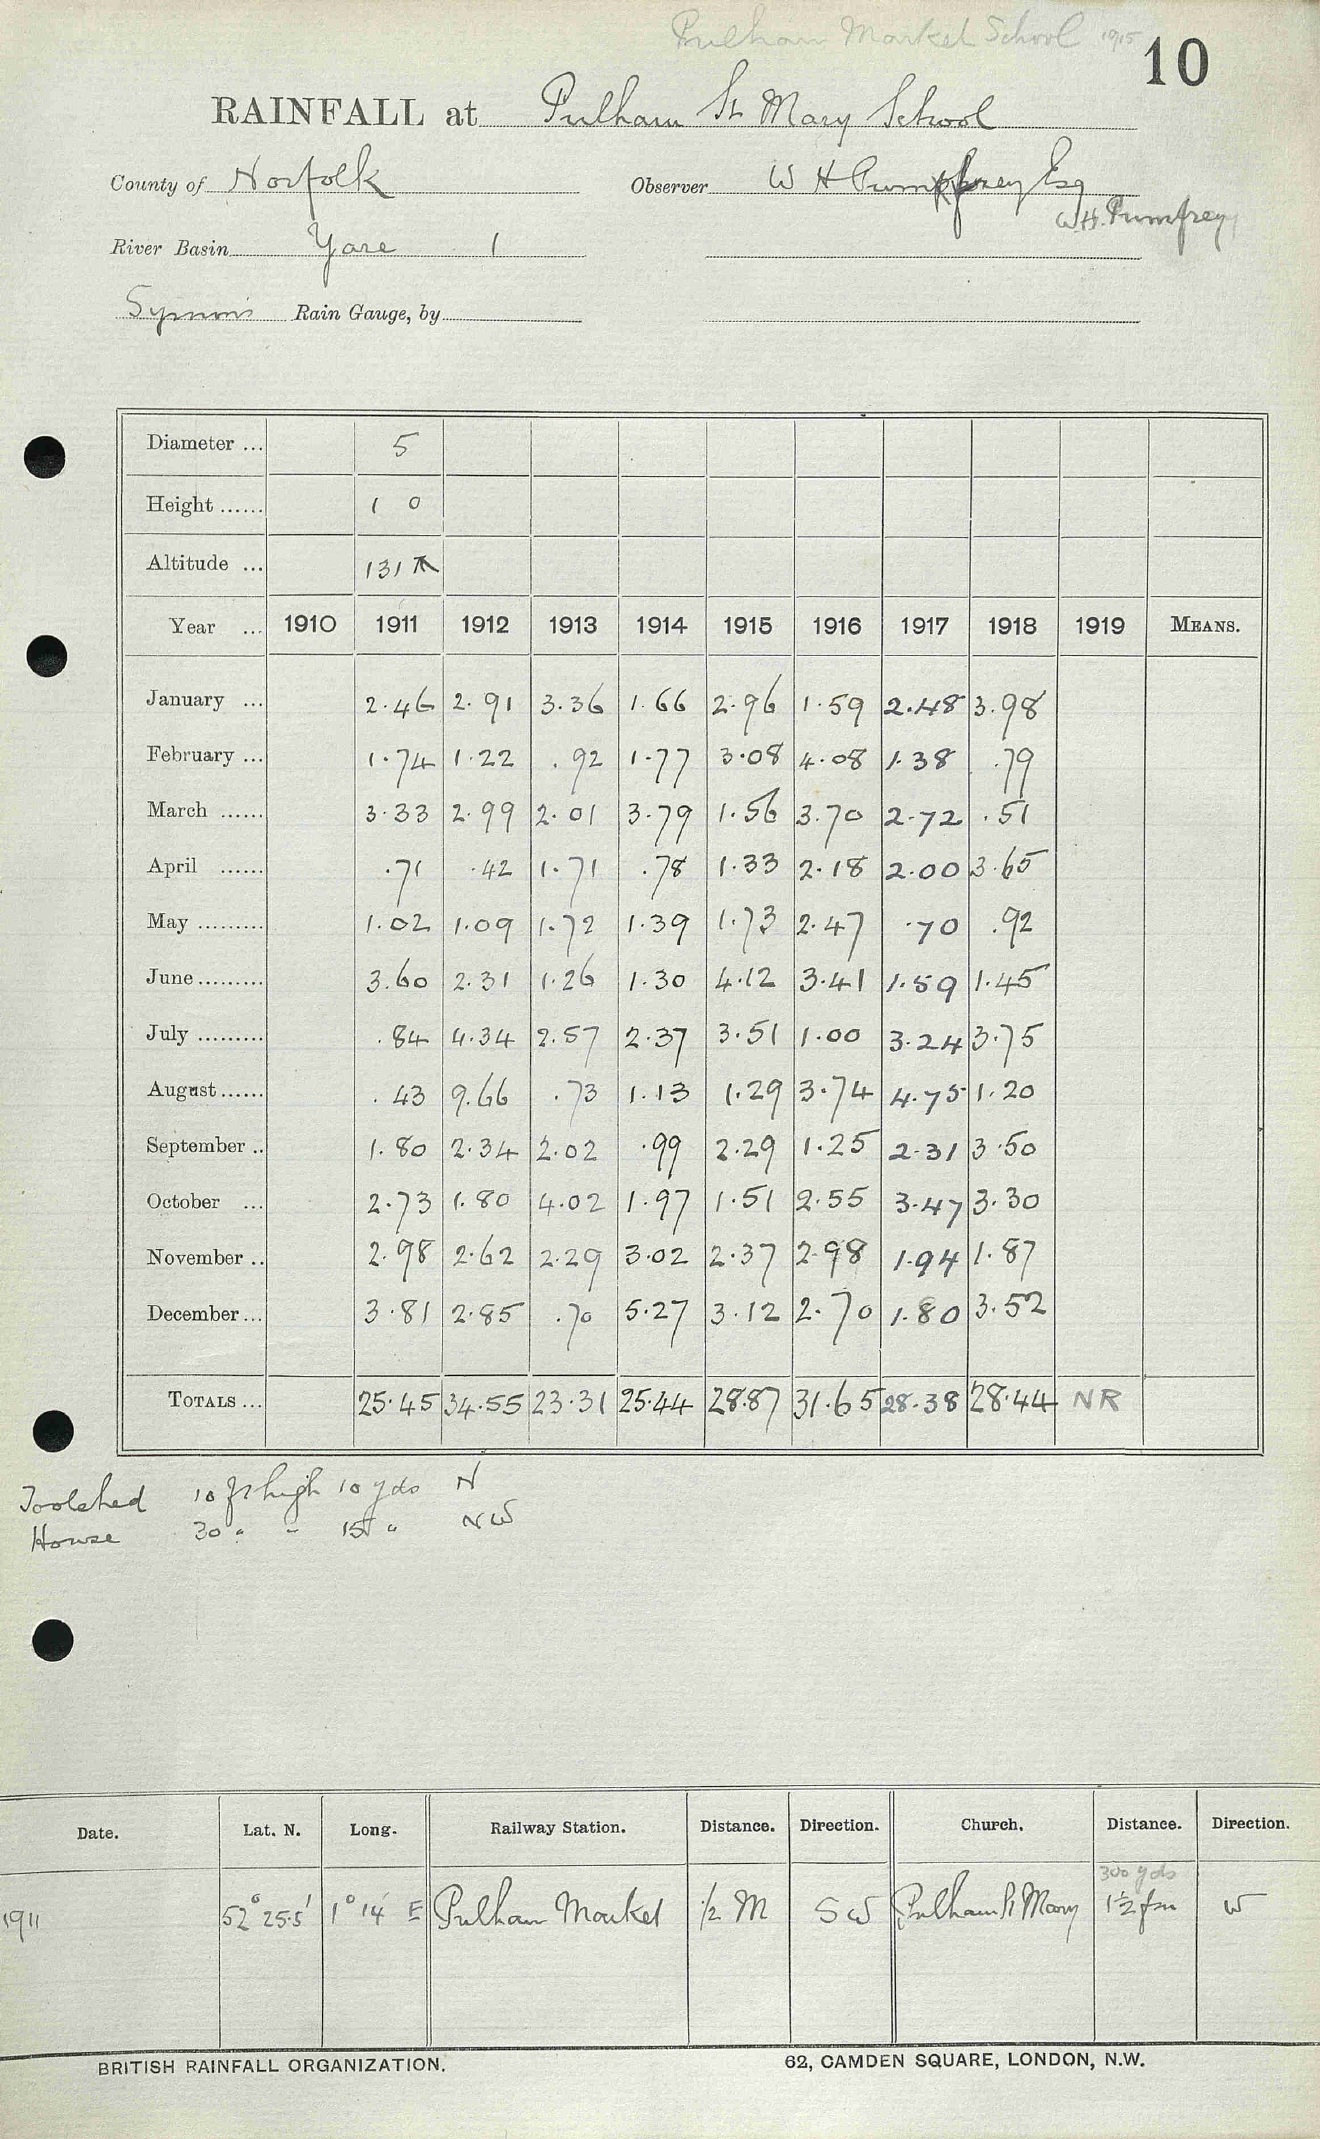 Pulham Market School 1915
10
RAINFALL at Pulham St Mary School
County of Norfolk Observer W H Pumphrey Esq
W.H. Pumfrey
River Basin Yare 1
Symons Rain Gauge, by
Diameter ... 5
Height ...... 1 0
Altitude ... 131
Year ... 1910 1911 1912 1913 1914 1915 1916 1917 1918 1919 MEANS.
January ... 2.46 2.91 3.36 1.66 2.96 1.59 2.48 3.98
February ... 1.74 1.22 .92 1.77 3.08 4.08 1.38 .79
March ...... 3.33 2.99 2.01 3.79 1.56 3.70 2.72 .51
April ...... .71 .42 1.71 .78 1.33 2.18 2.00 3.65
May ......... 1.02 1.09 1.72 1.39 1.73 2.47 .70 .92
June ......... 3.60 2.31 1.26 1.30 4.12 3.41 1.59 1.45
July ......... .84 4.34 2.57 2.37 3.51 1.00 3.24 3.75
August ...... .43 9.66 .73 1.13 1.29 3.74 4.75 1.20
September .. 1.80 2.34 2.02 .99 2.29 1.25 2.31 3.50
October ... 2.73 1.80 4.02 1.97 1.51 2.55 3.47 3.30
November .. 2.98 2.62 2.29 3.02 2.37 2.98 1.94 1.87
December ... 3.81 2.85 .70 5.27 3.12 2.70 1.80 3.52
TOTALS ... 25.45 34.55 23.31 25.44 28.87 31.65 28.38 28.44 NR
Toolshed 10 ft high 10 yds N
House 30 " " 15 " NW
Date. Lat. N. Long. Railway Station. Distance. Direction. Church. Distance. Direction.
300 yds
1911 52° 25.5' 1° 14' E Pulham Market 1/2 M SW Pulham St Mary 1 1/2 fur W
BRITISH RAINFALL ORGANIZATION. 62, CAMDEN SQUARE, LONDON, N.W.